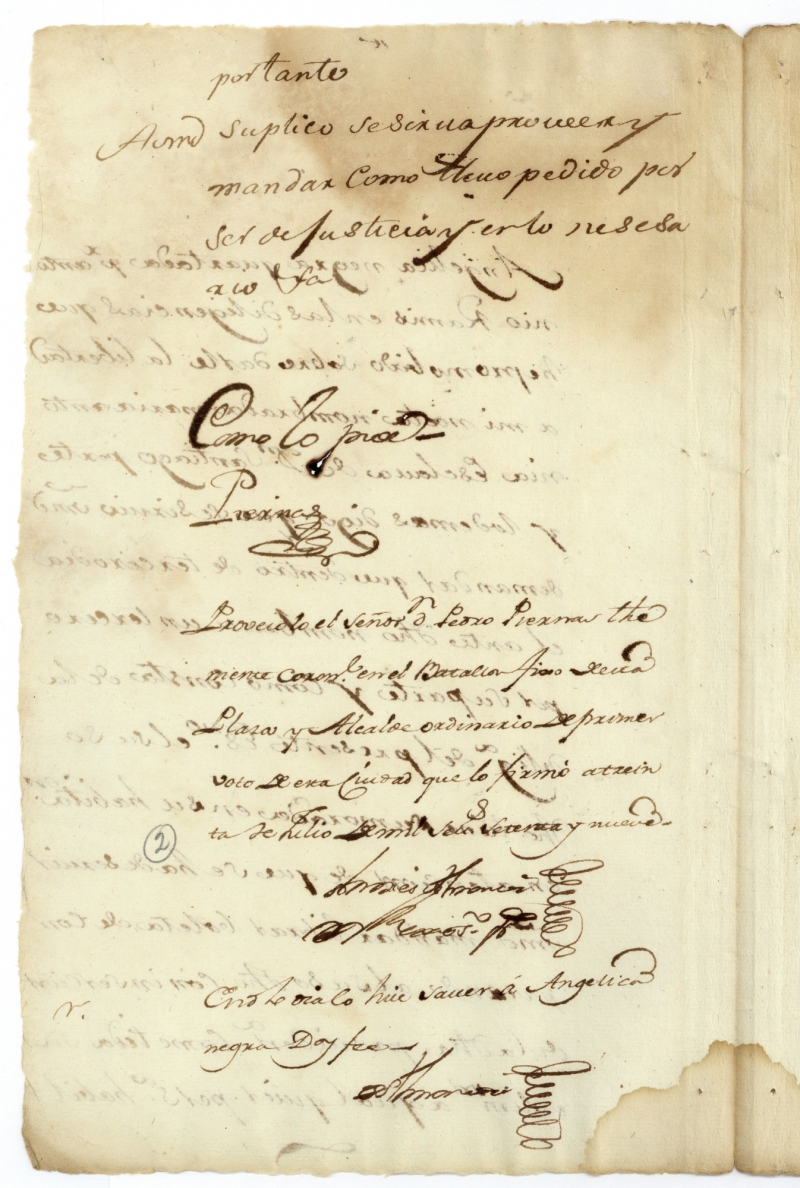 portante
A vmd suplico se sirva proveer y
mandar Como llevo pedido por
ser de Justicia y en lo nesesa
rio &a
Como lo pide
Piernas
Proveiolo el señor dn. Pedro Piernas the
niente coronl. en el Batallon fixo de esta
Plaza y Alcalde ordinario de primer
voto de esta Ciudad que lo firmó a trein
ta de Julio de mil setts. setenta y nueve
Andres Almonester
y Roxas
En dho dia lo hice saver á Angelica
negra Doy fee
Almonester
r.
2